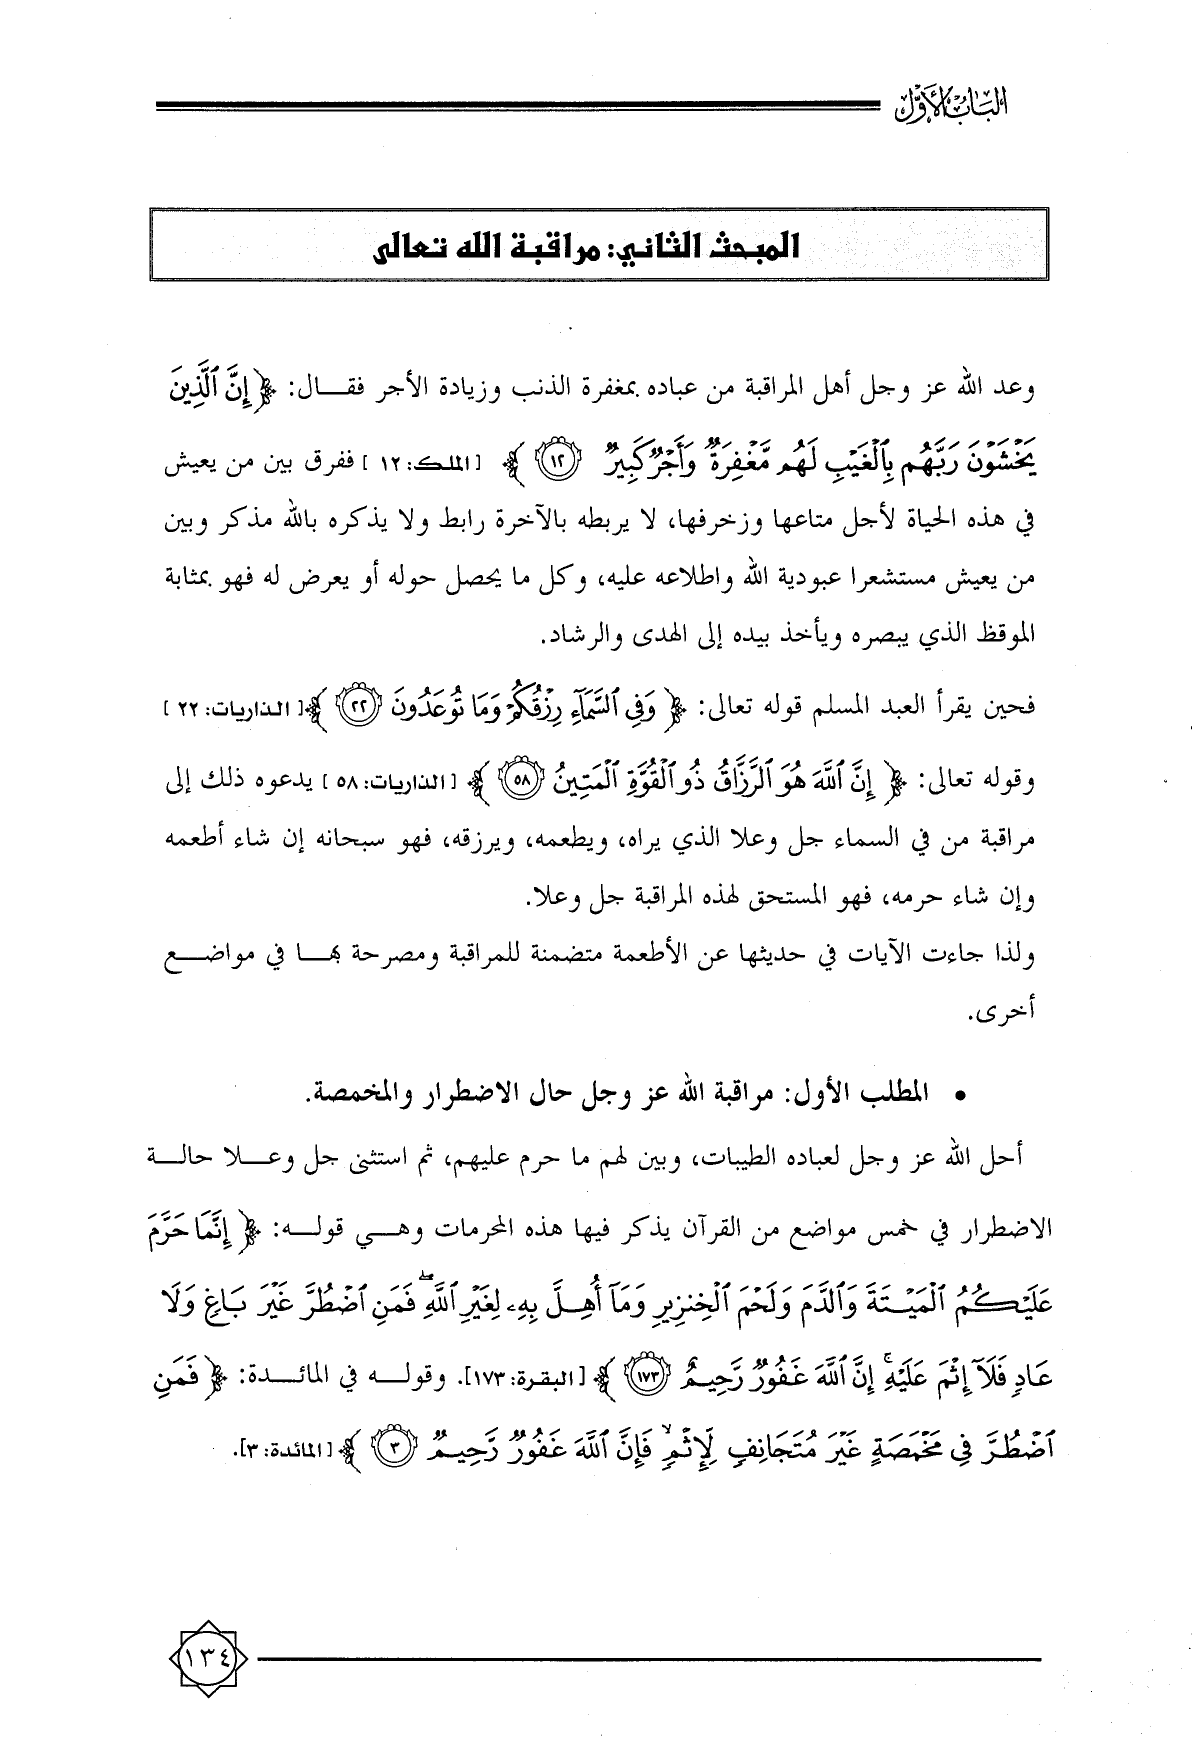 الباب الأول
المبحث الثاني: مراقبة الله تعالى
وعد الله عز وجل أهل المراقبة من عباده بمغفرة الذنب وزيادة الأجر فقـــال: ﴿ إِنَّ ٱلَّذِينَ
يَخْشَوْنَ رَبَّهُم بِٱلْغَيْبِ لَهُم مَّغْفِرَةٌ وَأَجْرٌ كَبِيرٌ ١٢ ﴾ [الملك: ١٢ ] ففرق بين من يعيش
في هذه الحياة لأجل متاعها وزخرفها، لا يربطه بالآخرة رابط ولا يذكره بالله مذكر وبين
من يعيش مستشعرا عبودية الله واطلاعه عليه، وكل ما يحصل حوله أو يعرض له فهو بمثابة
الموقظ الذي يبصره ويأخذ بيده إلى الهدى والرشاد.
فحين يقرأ العبد المسلم قوله تعالى: ﴿ وَفِي ٱلسَّمَآءِ رِزْقُكُمْ وَمَا تُوعَدُونَ ٢٢ ﴾[ الذاريات: ٢٢ ]
وقوله تعالى: ﴿ إِنَّ ٱللَّهَ هُوَ ٱلرَّزَّاقُ ذُو ٱلْقُوَّةِ ٱلْمَتِينُ ٥٨ ﴾ [الذاريات: ٥٨ ] يدعوه ذلك إلى
مراقبة من في السماء جل وعلا الذي يراه، ويطعمه، ويرزقه، فهو سبحانه إن شاء أطعمه
وإن شاء حرمه، فهو المستحق لهذه المراقبة جل وعلا.
ولذا جاءت الآيات في حديثها عن الأطعمة متضمنة للمراقبة ومصرحة بهـــا في مواضـــع
أخرى.
• المطلب الأول: مراقبة الله عز وجل حال الاضطرار والمخمصة.
أحل الله عز وجل لعباده الطيبات، وبين لهم ما حرم عليهم، ثم استثنى جل وعـــلا حالـــة
الاضطرار في خمس مواضع من القرآن يذكر فيها هذه المحرمات وهـــي قولـــه: ﴿ إِنَّمَا حَرَّمَ
عَلَيْكُمُ ٱلْمَيْتَةَ وَٱلدَّمَ وَلَحْمَ ٱلْخِنزِيرِ وَمَآ أُهِلَّ بِهِۦ لِغَيْرِ ٱللَّهِۖ فَمَنِ ٱضْطُرَّ غَيْرَ بَاغٍ وَلَا
عَادٍ فَلَآ إِثْمَ عَلَيْهِۚ إِنَّ ٱللَّهَ غَفُورٌ رَّحِيمٌ ١٧٣ ﴾ [البقرة: ١٧٣]. وقولـــه في المائـــدة: ﴿ فَمَنِ
ٱضْطُرَّ فِي مَخْمَصَةٍ غَيْرَ مُتَجَانِفٍ لِّإِثْمٍۙ فَإِنَّ ٱللَّهَ غَفُورٌ رَّحِيمٌ ٣ ﴾ [المائدة: ٣].
١٣٤